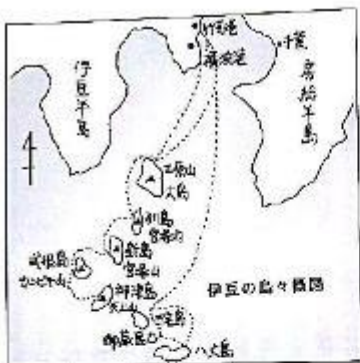 竹芝港
横浜港
千葉
伊豆半島
房総半島
三原山
大島
利島
宮塚山
新島
宮塚山
式根島
カンビキ山
神津島
天上山
三宅島
御蔵島
八丈島
伊豆の島々概図